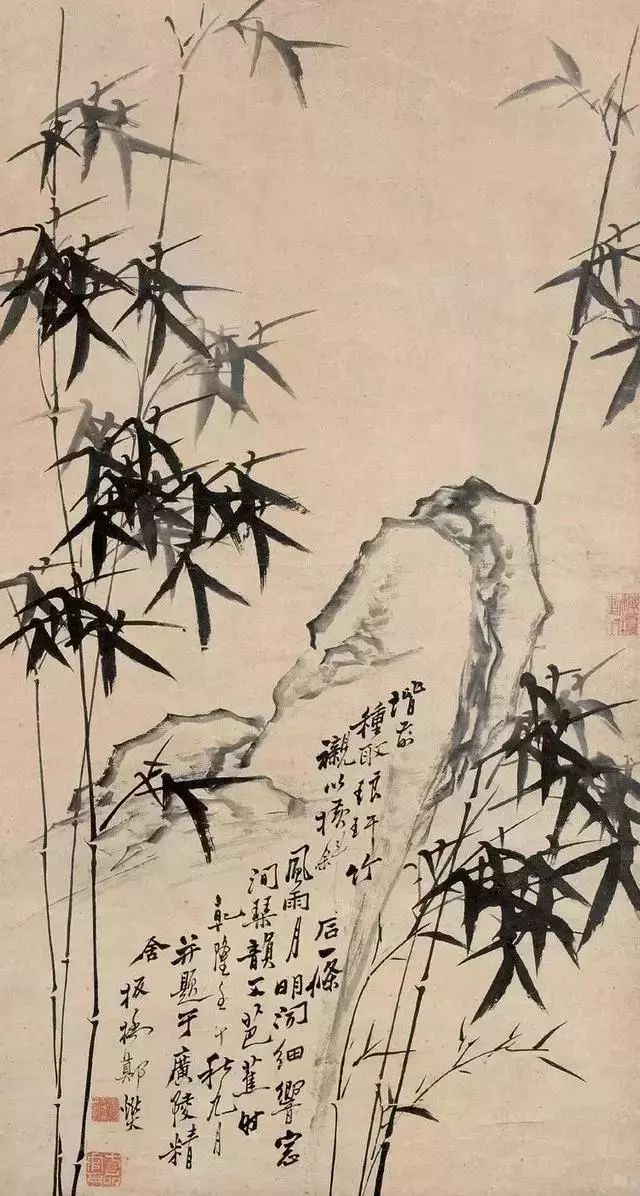 階前
種取琅玕竹
襯以橫斜
石一條
風雨月明聞細響窓
間琴韻又芭蕉時
乾隆壬午秋九月
并題于廣陵精
舍 板橋鄭燮